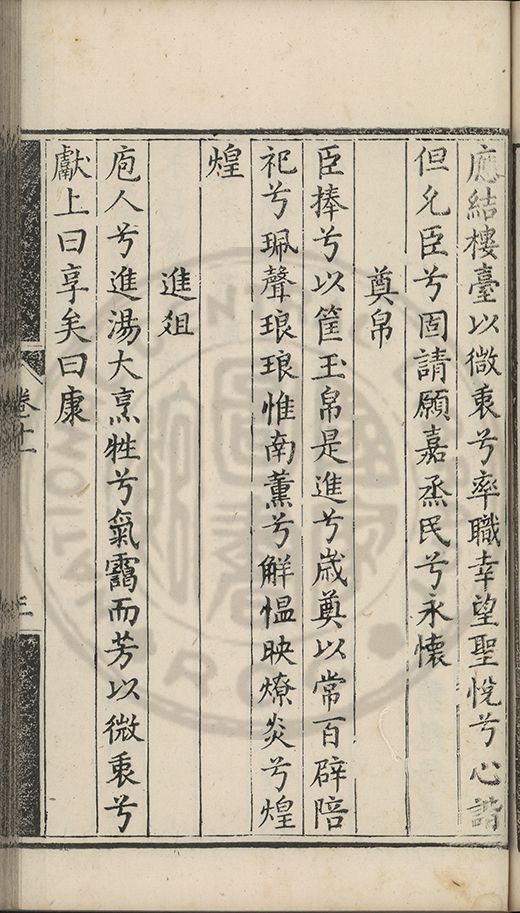 應結樓臺以微衷兮率職幸望聖悅兮心諧
但允臣兮固請願嘉烝民兮永懷
奠帛
臣捧兮以筐玉帛是進兮歲奠以常百辟陪
祀兮珮聲琅琅惟南薰兮解慍映燎炎兮煌
煌
進俎
庖人兮進湯大烹牲兮氣靄而芳以微衷兮
獻上曰享矣曰康
卷十一
三